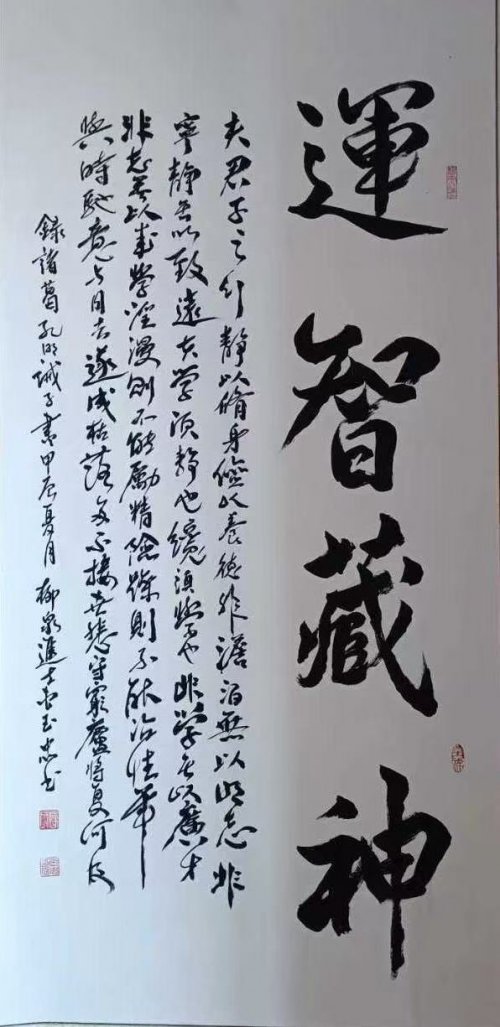 運智藏神
夫君子之行靜以脩身儉以養德非澹泊無以明志非
寧靜無以致遠夫學須靜也纔須學也非學無以廣才
非志無以成學淫漫則不能勵精險躁則不能治性年
與時馳意與日去遂成枯落多不接世悲守窮廬將复何及
錄諸葛孔明誡子書甲辰夏月柳泉進士玉忠書